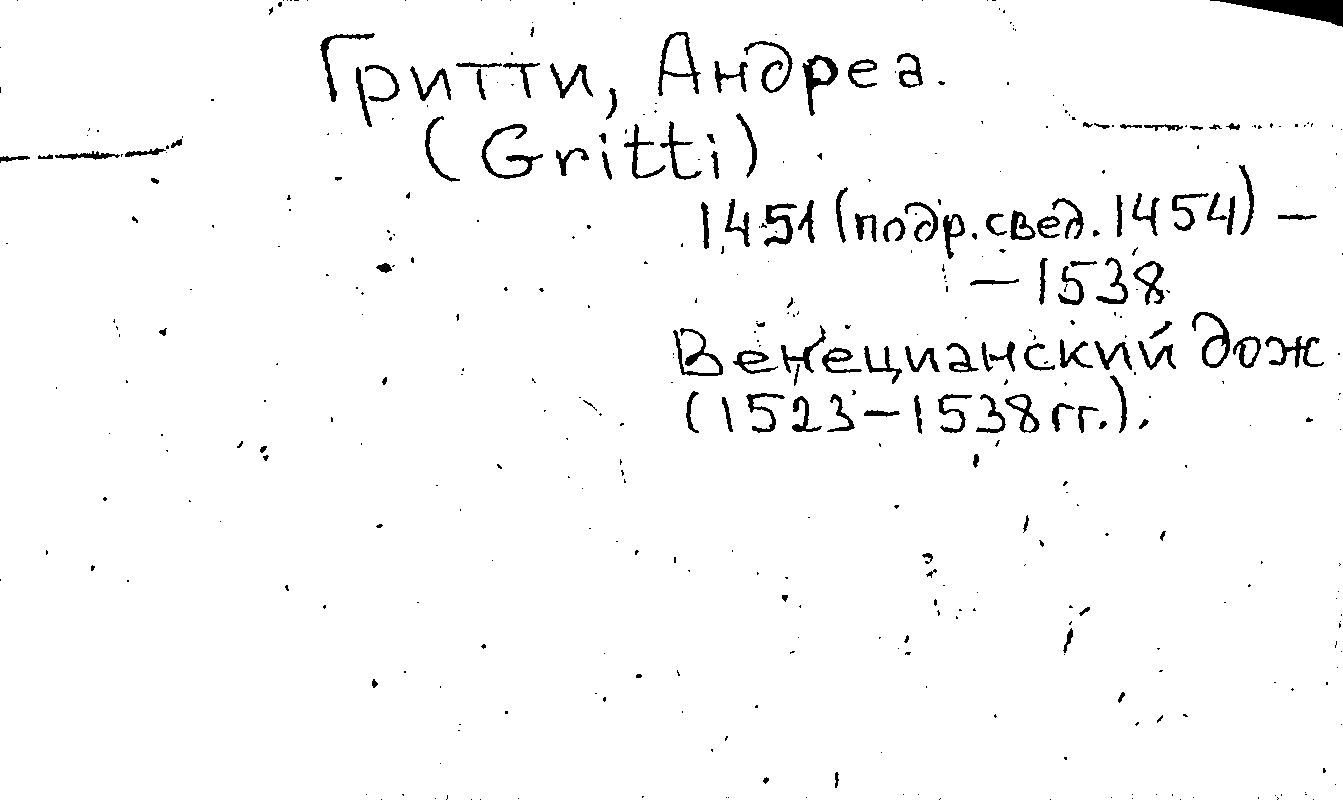 Гритти, Андреа.
(Gritti)
1451 (подр. свед. 1454) —
— 1538
Венецианский дож
(1523—1538 гг.).